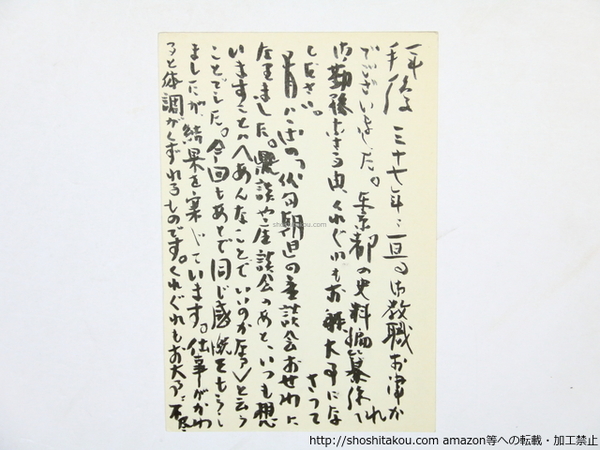 拝復 三十七年に亘る御教職お津か
れ
でございました。東京都の史料編纂係に
御勤務なさる由、くれぐれもお大事にな
さって
ください。
の座談会おせわに
なりました。座談会のあと、いつも想
いますことはへあんなことでいいのかなァと云う
ことでした。今回もあとで同じ感慨をもうし
ましたが、結果を案じています。仕事がかわ
ると体調がくずれるものです。くれぐれもお大事に
shoshitakou.com
http://shoshitakou.com amazon等への転載・加工禁止